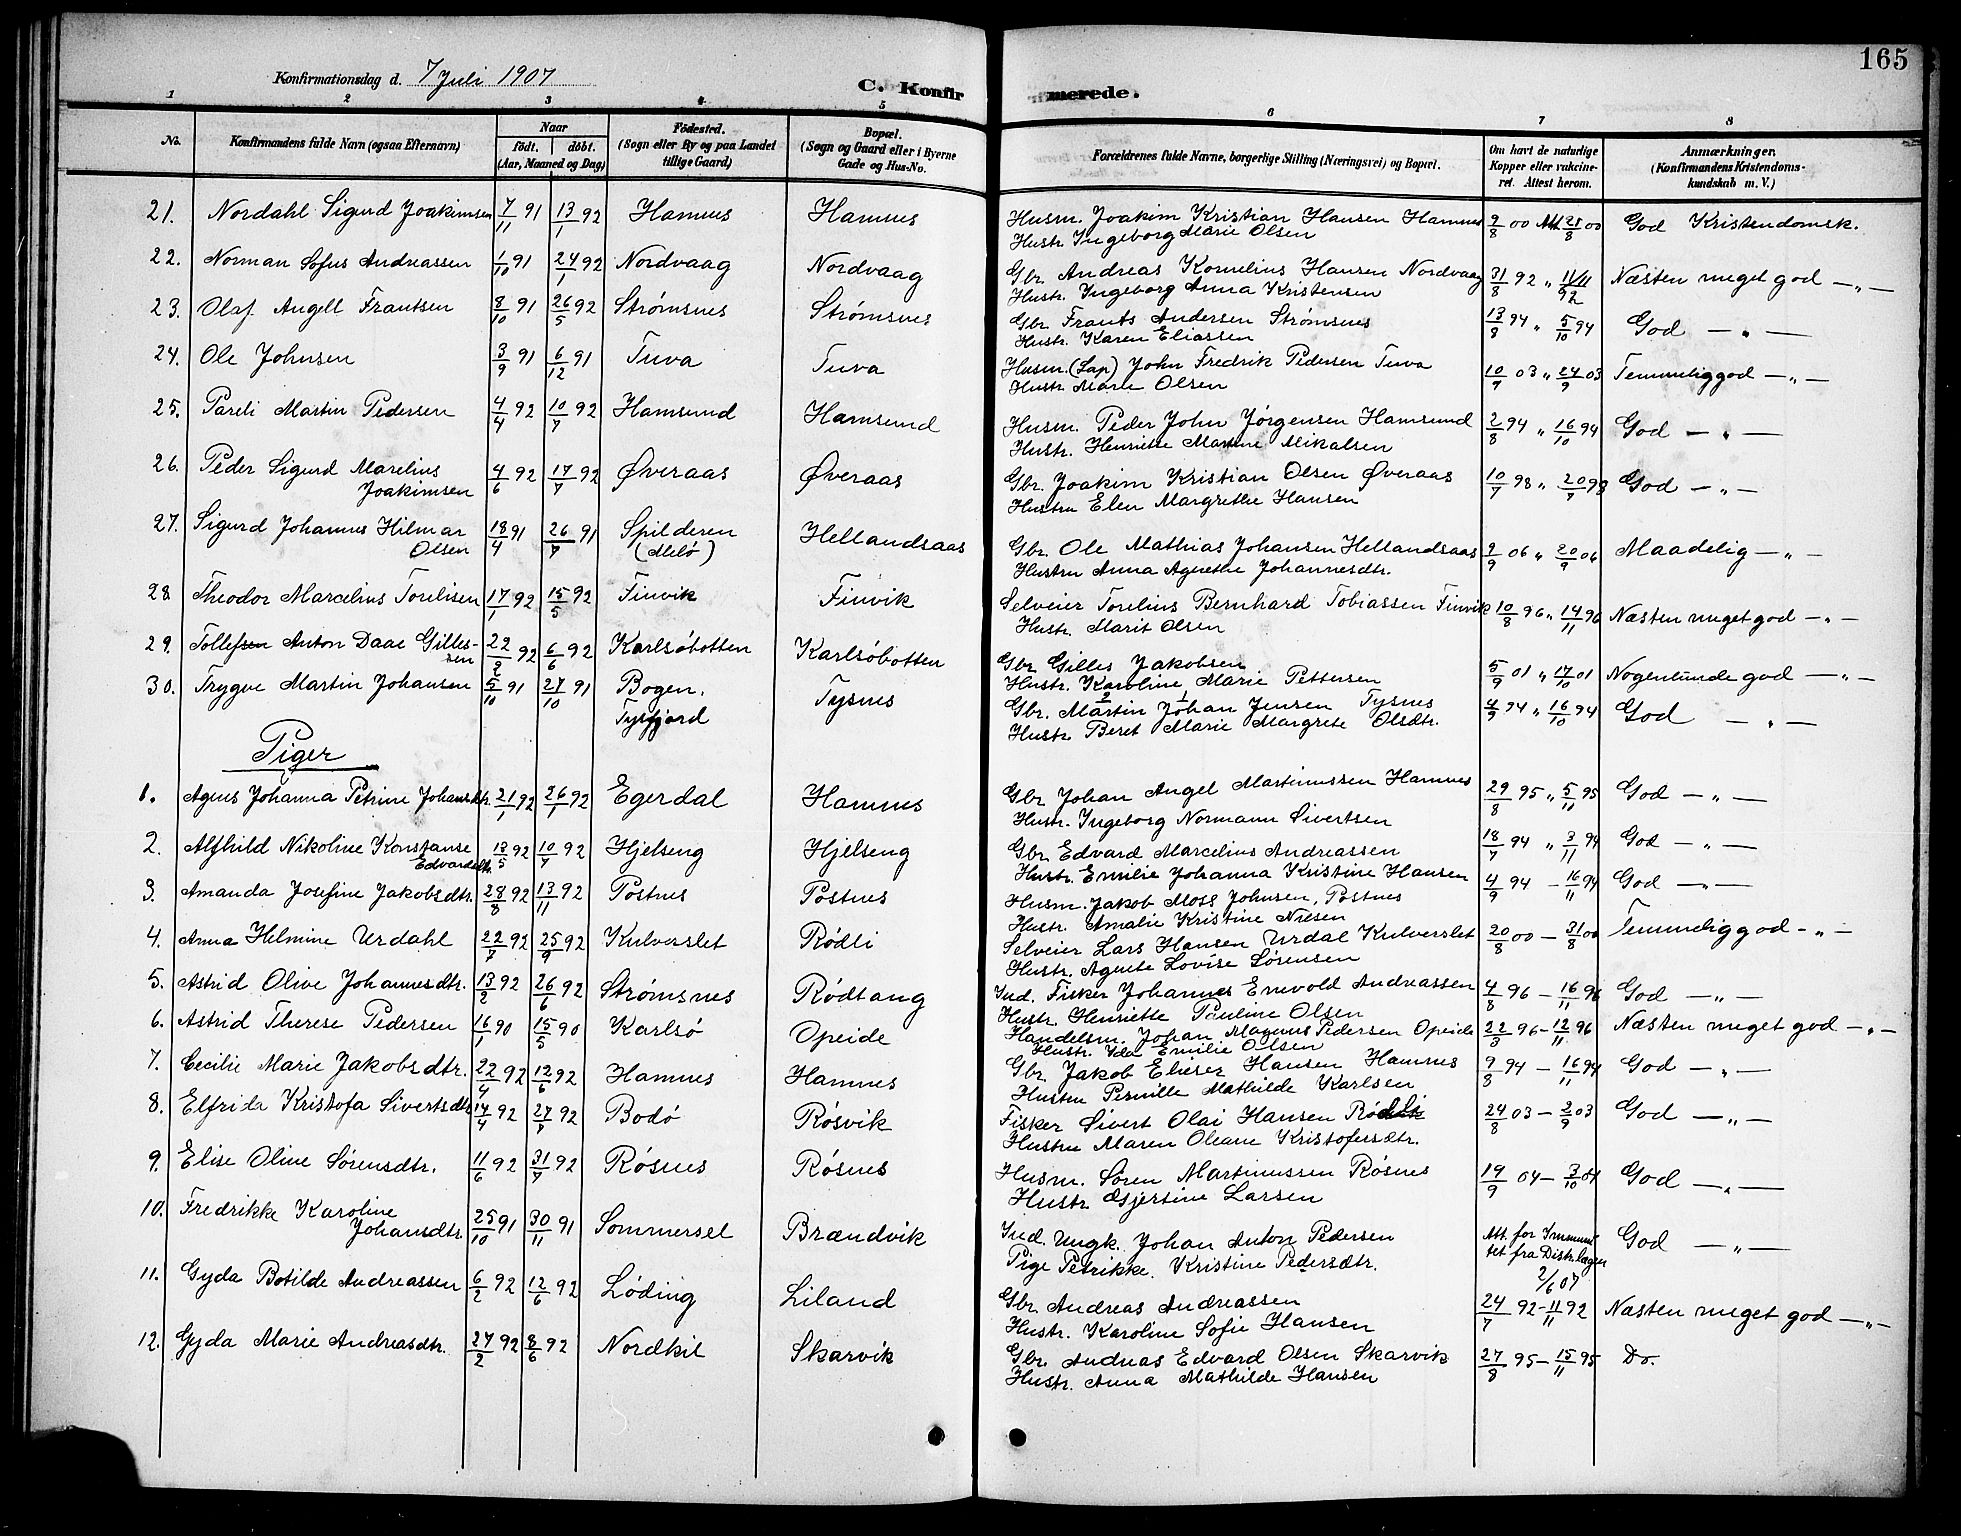 165
Konfirmationsdag d. 7 Juli 1907
C. Konfirmerede.
1 2 3 4 5 6 7 8
No. Konfirmandens fulde Navn (ogsaa Efternavn) Naar født. døbt. (Aar, Maaned og Dag) Fødested. (Sogn eller By og paa Landet tillige Gaard) Bopæl. (Sogn og Gaard eller i Byerne Gade og Hus-No. Forældrenes fulde Navne, borgerlige Stilling (Næringsvei) og Bopæl. Om havt de naturlige Kopper eller vakcineret. Attest herom. Anmærkninger. (Konfirmandens Kristendomskundskab m. V.)
21. Nordahl Sigurd Joakimsen 7/11 91 13/1 92 Hamnes Hamnes Husm. Joakim Kristian Hansen Hamnes 9/8 00 Att 21/8 00 God Kristendomsk.
Hustr Ingeborg Marie Olsen
22. Norman Sofus Andreassen 1/10 91 24/1 92 Nordvaag Nordvaag Gbr. Andreas Kornelius Hansen Nordvaag 31/8 92 " 11/11 92 Næsten meget god — " —
Hustr. Ingeborg Anna Kristensen
23. Olaf Angell Frantsen 8/10 91 26/5 92 Strømsnes Strømsnes Gbr. Frants Andersen Strømsnes 13/8 94 " 5/10 94 God — " —
Hustr. Karen Eliassen
24. Ole Johnsen 3/9 91 6/12 91 Tuva Tuva Husm. (Lap) John Fredrik Pedersen Tuva 10/7 03 " 24/9 03 Temmelig god — " —
Hustr Marie Olsen
25. Pareli Martin Pedersen 4/4 92 10/7 92 Hamsund Hamsund Husm. Peder John Jørgensen Hamsund 2/8 94 " 16/10 94 God — " —
Hustr. Henriette Martine Mikalsen
26. Peder Sigurd Marelius Joakimsen 4/6 92 17/7 92 Øveraas Øveraas Gbr. Joakim Kristian Olsen Øveraas 10/7 98 " 20/9 98 God — " —
Hustru Elen Margrethe Hansen
27. Sigurd Johannes Hilmar Olsen 18/4 91 26/7 91 Spilderen (Melø) Hellandsaas Gbr. Ole Mathias Johansen Hellandsaas 9/9 06 " 20/9 06 Maadelig — " —
Hustru Anna Agnethe Johannesdtr.
28 Theodor Marcelius Torelisen 17/1 92 15/5 92 Finvik Finvik Selveier Torelius Bernhard Tobiassen Finvik 10/8 96 " 14/11 96 Næsten meget god — " —
Hustr. Marit Olsen
29. Tollefsen Anton Daae Gillessen 22/2 92 6/6 92 Karlsøbotten Karlsøbotten Gbr Gilles Jakobsen 5/9 01 " 17/10 01 Nogenlunde god — " —
Hustr. Karoline Marie Pettersen
30. Trygve Martin Johansen 5/10 91 27/10 91 Bogen, Tysfjord Tysnes Gbr. Martin Johan Jensen Tysnes 4/9 94 " 16/10 94 God — " —
Hustr Beret Marie Margrete Olsdtr.
Piger
1. Agnes Johanna Petrine Johansdtr. 21/1 92 26/1 92 Egerdal Hamnes Gbr Johan Angel Martinussen Hamnes 29/8 95 " 5/11 95 God — " —
Hustr. Ingeborg Normann Sivertsen
2. Alfhild Nikoline Konstanse Edvardsdtr. 13/5 92 10/7 92 Hjelseng Hjelseng Gbr Edvard Marcelius Andreassen 18/7 94 " 3/11 94 God — " —
Hustr. Emilie Johanna Kristine Hansen
3. Amanda Josefine Jakobsdtr. 28/8 92 13/11 92 Postnes Postnes Husm. Jakob Moss Johnsen, Postnes 4/9 94 — 16/11 94 God — " —
Hustr. Amalie Kristine Nilsen
4. Anna Helmine Urdahl 22/7 92 25/9 92 Kulverslet Rødli Selveier Lars Hansen Urdal Kulverslet 20/8 00 — 31/8 00 Temmelig god — " —
Hustr. Agnete Lovise Sørensen
5. Astrid Olive Johannesdtr. 13/2 92 26/6 92 Strømsnes Rødtang Ind. Fisker Johannes Enevold Andreassen 4/8 96 — 16/11 96 God — " —
Hustr. Henriette Pauline Olsen
6. Astrid Therese Pedersen 16/1 90 15/5 90 Karlsø Opeide Handelsm. Johan Magnus Pedersen Opeide 22/8 96 — 12/11 96 Næsten meget god — " —
Hustr. Ida Emilie Olsen
7. Cecilie Marie Jakobsdtr. 22/4 92 12/6 92 Hamnes Hamnes Gbr. Jakob Elieser Hansen Hamnes 9/8 94 — 16/11 94 God — " —
Hustru Pernille Mathilde Karlsen
8. Elfrida Kristofa Sivertsdtr 14/4 92 27/7 92 Bodø Røsvik Fisker Sivert Olai Hansen 24/8 03 — 2/9 03 God — " —
Hustru Maren Oleane Kristofersdtr.
9. Elise Oline Sørensdtr. 11/6 92 31/7 92 Røsnes Røsnes Husm. Søren Martinussen Røsnes 19/9 04 — 3/10 04 God — " —
Hustr. Gjertine Larsen
10. Fredrikke Karoline Johansdtr. 25/10 91 30/11 91 Sommersel Brændvik Ind. Ungk. Johan Anton Pedersen Att. for Immunitet fra Distr.lægen 2/6 07 God — " —
Pige Petrikke Kristine Pedersdtr.
11. Gyda Botilde Andreassen 6/2 92 12/6 92 Løding Liland Gbr. Andreas Andreassen 24/7 92 — 11/11 92 Næsten meget god — " —
Hustr. Karoline Sofie Hansen
12. Gyda Marie Andreasdtr. 27/2 92 8/6 92 Nordkil Skarvik Gbr. Andreas Edvard Olsen Skarvik 27/8 95 — 15/11 95 Do.
Hustr. Anna Mathilde Hansen